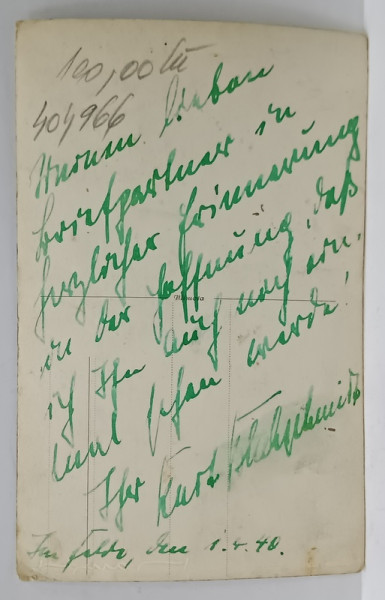 100,00
404966
Meinem lieben
Briefpartner in
herzlicher Erinnerung
in der Hoffnung, daß
ich Ihn auch noch ein-
mal sehen werde!
Ihr Kurt
Im Felde, den 1.4.40.